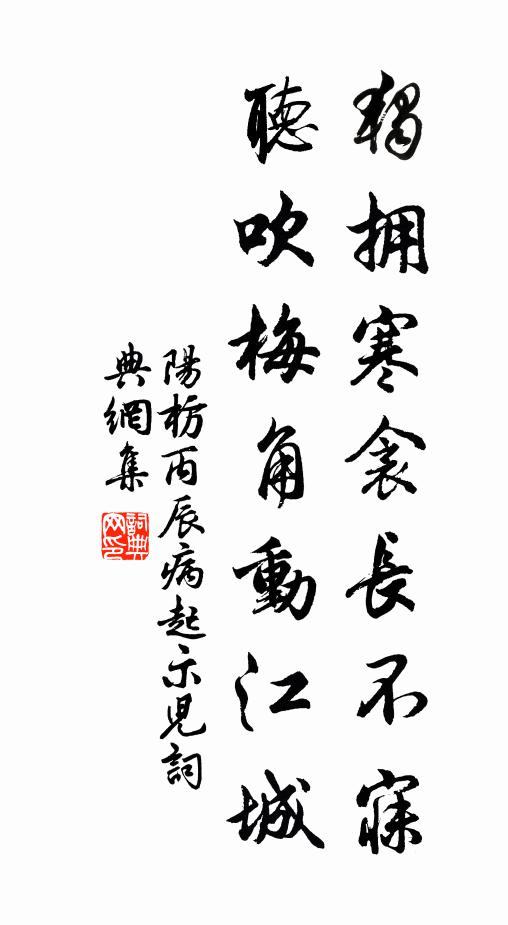 獨拥寒衾長不寐
聽吹梅角動江城
陽枋丙辰病起示児詞
典網集
詞典
网印